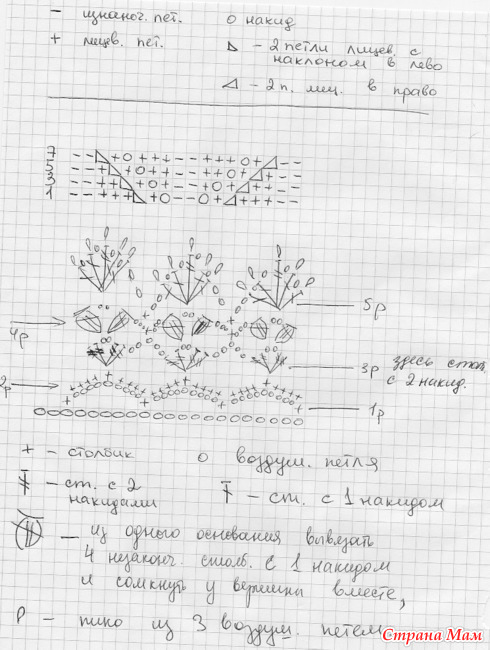 – изнаноч. пет. о накид
+ лицев. пет. – 2 петли лицев. с
наклоном в лево
– 2 п. лиц. в право
7 – – + о + + + – – + + + о + – –
5 – – + + о + + – – + + о + + – –
3 – – + + + о + – – + о + + + – –
1 – – + + + + о – – о + + + + – –
5р
4р
3р здесь столб.
с 2 накид.
2р
1р
+ – столбик о воздуш. петля
– ст. с 2
накидами – ст. с 1 накидом
– из одного основания вывязать
4 незаконч. столб. с 1 накидом
и сомкнуть у вершины вместе,
– пико из 3 воздуш. петель
Страна Мам